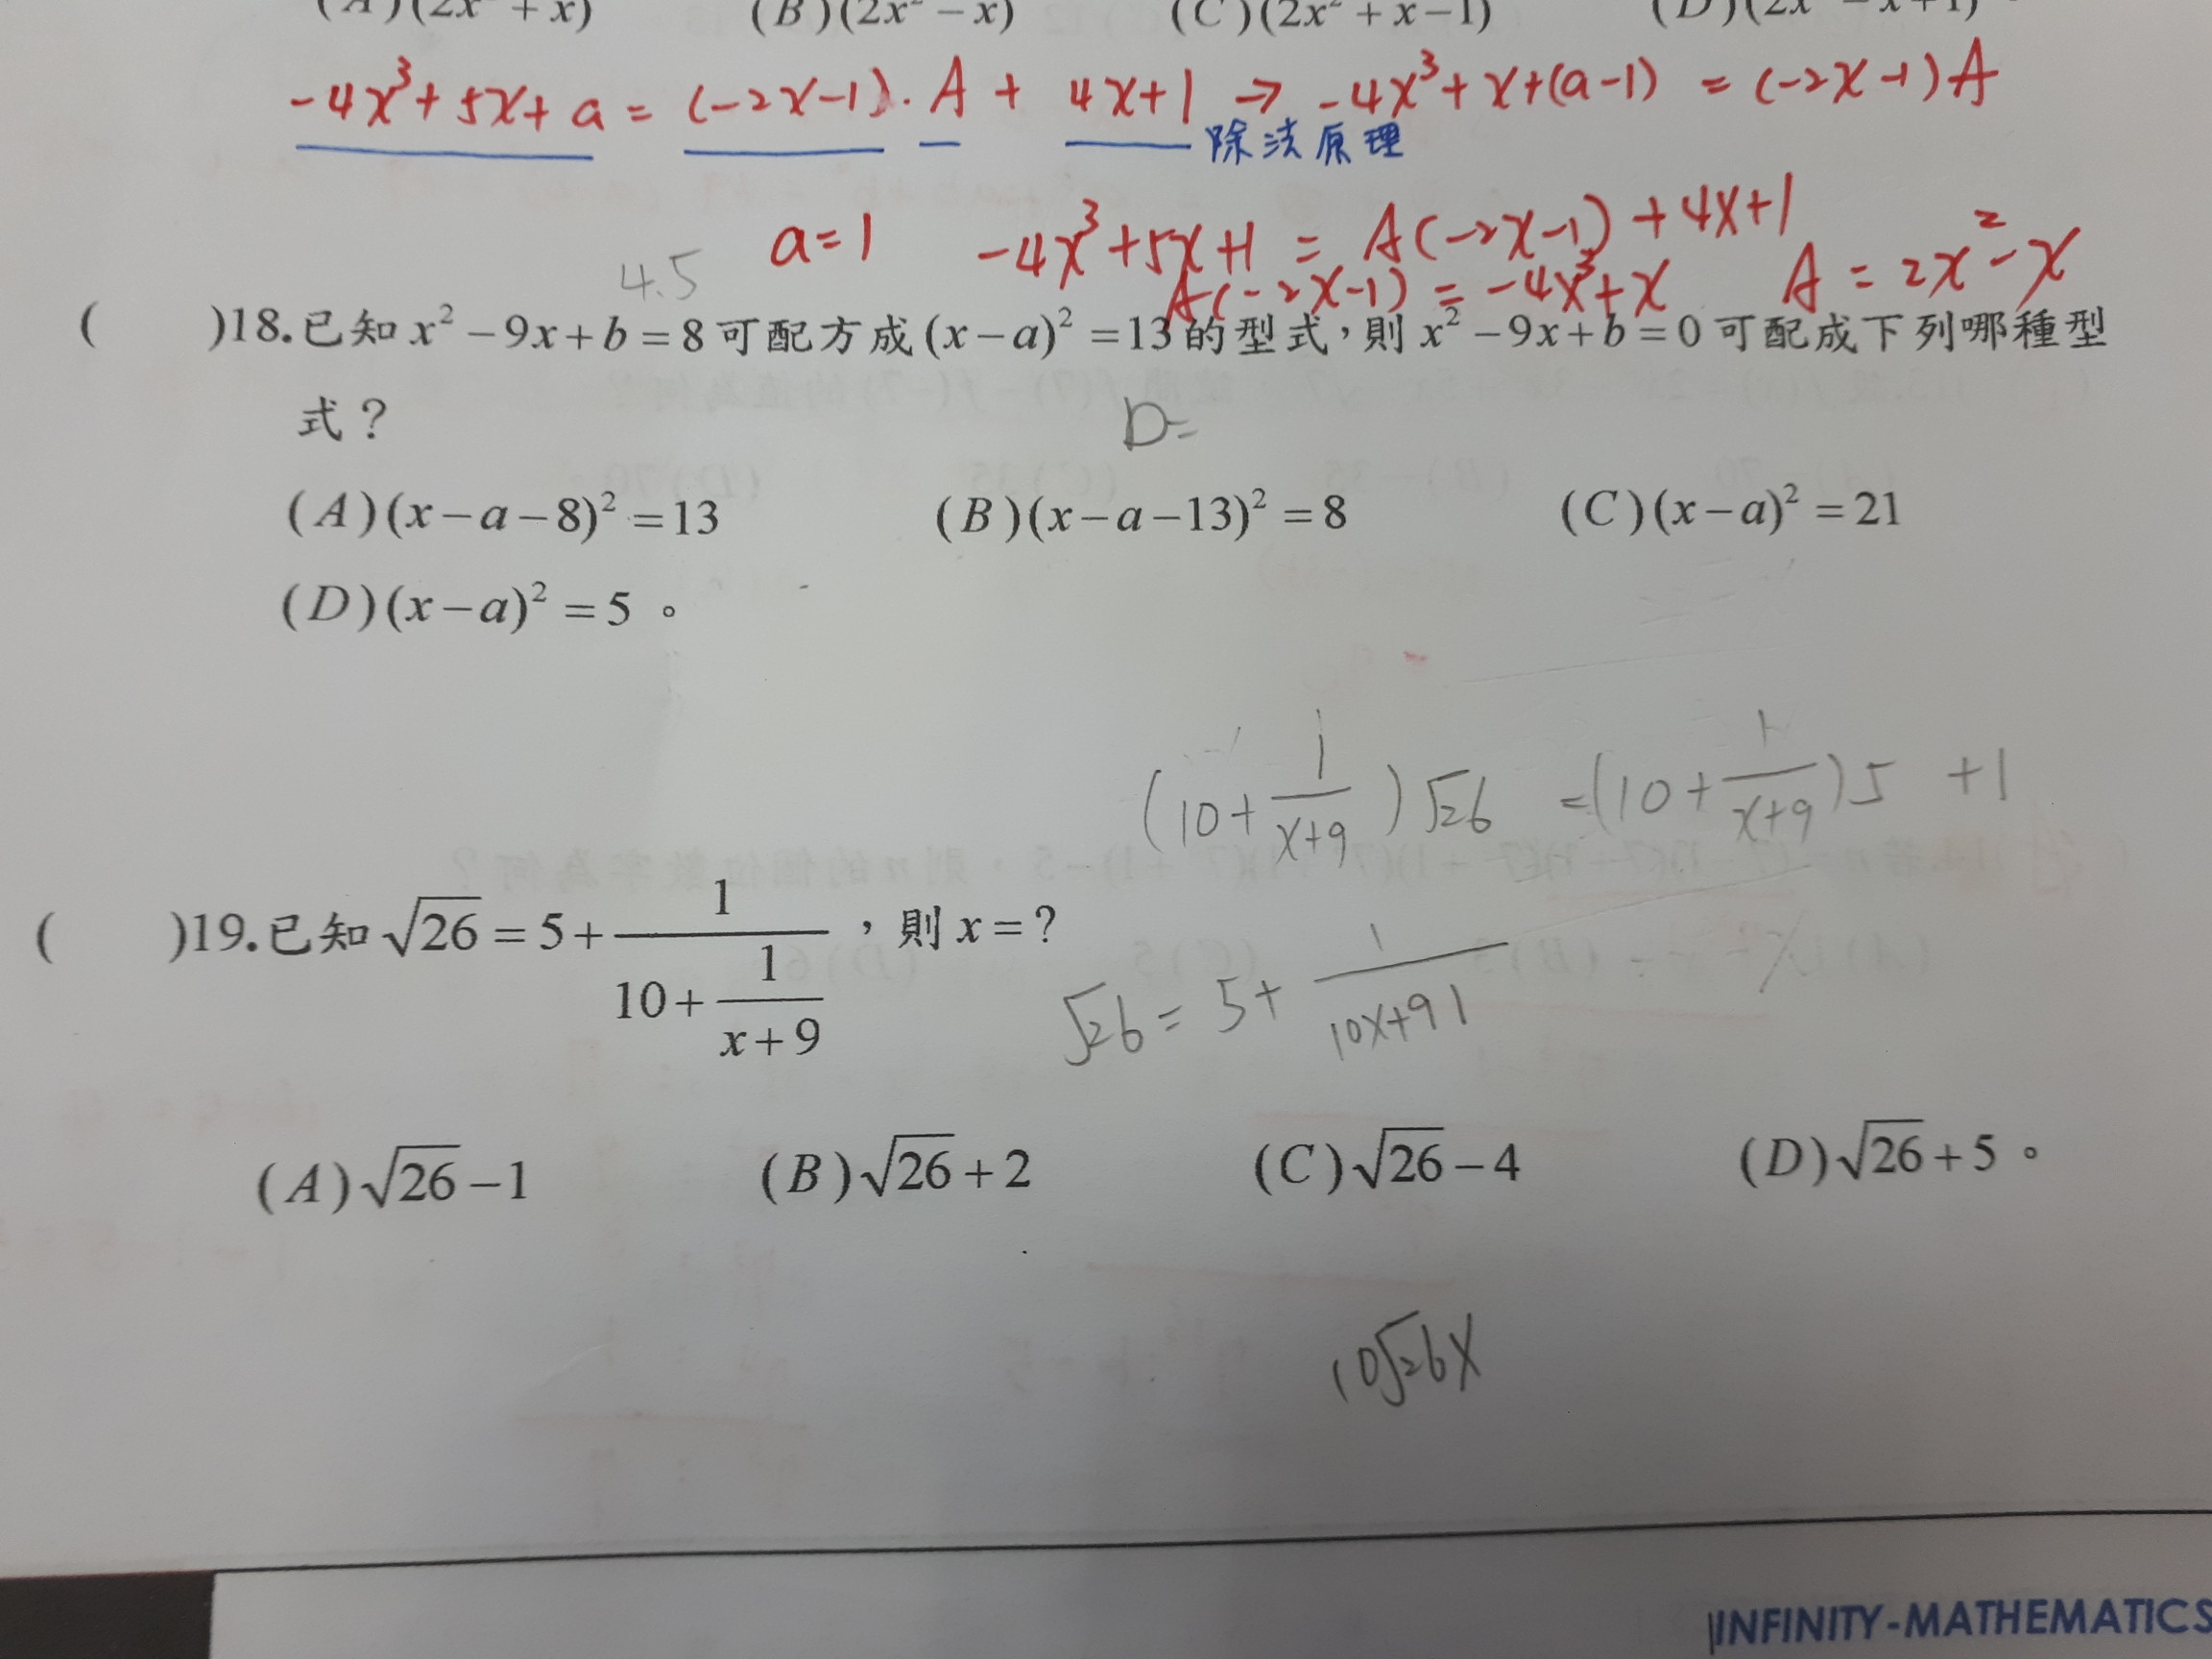 (A)(2x² + x) (B)(2x² − x) (C)(2x² + x − 1) (D)(2x² − x + 1)
-4x³+5x+a = (-2x-1)·A + 4x+1 → -4x³+x+(a-1) = (-2x-1)A
除法原理
a=1 -4x³+5x+1 = A(-2x-1)+4x+1
A(-2x-1) = -4x³+x A = 2x²-x
4.5
( )18.已知 x² − 9x + b = 8 可配方成 (x − a)² = 13 的型式，則 x² − 9x + b = 0 可配成下列哪種型
式？
b=
(A)(x − a − 8)² = 13 (B)(x − a − 13)² = 8 (C)(x − a)² = 21
(D)(x − a)² = 5 。
(10+1/(x+9))√26 = (10+1/(x+9))5 +1
( )19.已知 √26 = 5 + 1/(10 + 1/(x + 9))，則 x = ?
√26 = 5+ 1/(10x+91)
(A)√26 − 1 (B)√26 + 2 (C)√26 − 4 (D)√26 + 5 。
10√26x
INFINITY-MATHEMATICS